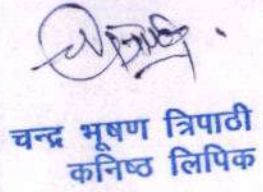 चन्द्र भूषण त्रिपाठी
कनिष्ठ लिपिक